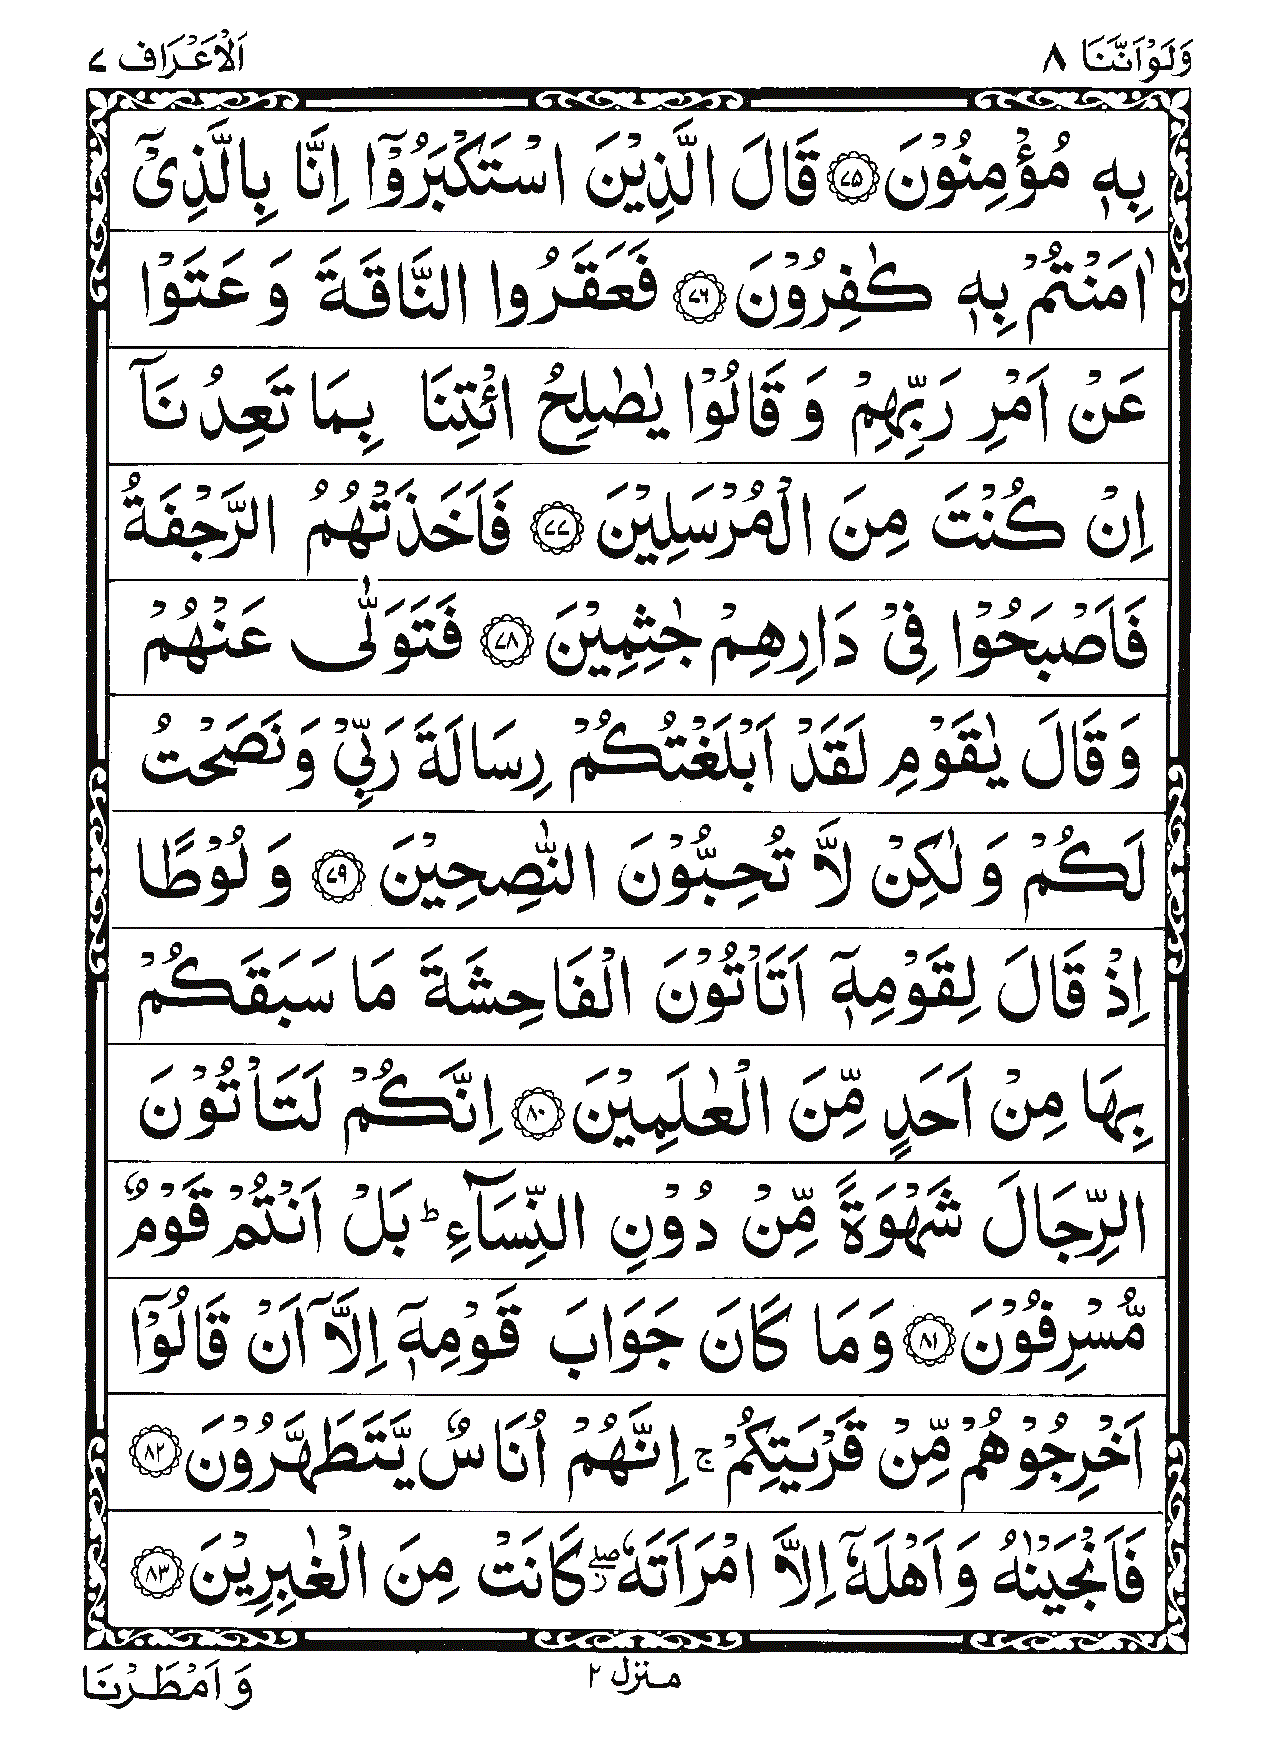 وَلَوْاَنَّنَا ٨ اَلْاَعْرَاف ٧
بِهٖ مُؤْمِنُوْنَ ﴿٧٥﴾ قَالَ الَّذِيْنَ اسْتَكْبَرُوْۤا اِنَّا بِالَّذِيْۤ
اٰمَنْتُمْ بِهٖ كٰفِرُوْنَ ﴿٧٦﴾ فَعَقَرُوا النَّاقَةَ وَ عَتَوْا
عَنْ اَمْرِ رَبِّهِمْ وَ قَالُوْا يٰصٰلِحُ ائْتِنَا بِمَا تَعِدُنَاۤ
اِنْ كُنْتَ مِنَ الْمُرْسَلِيْنَ ﴿٧٧﴾ فَاَخَذَتْهُمُ الرَّجْفَةُ
فَاَصْبَحُوْا فِيْ دَارِهِمْ جٰثِمِيْنَ ﴿٧٨﴾ فَتَوَلّٰى عَنْهُمْ
وَقَالَ يٰقَوْمِ لَقَدْ اَبْلَغْتُكُمْ رِسَالَةَ رَبِّيْ وَنَصَحْتُ
لَكُمْ وَلٰكِنْ لَّا تُحِبُّوْنَ النّٰصِحِيْنَ ﴿٧٩﴾ وَ لُوْطًا
اِذْ قَالَ لِقَوْمِهٖۤ اَتَاْتُوْنَ الْفَاحِشَةَ مَا سَبَقَكُمْ
بِهَا مِنْ اَحَدٍ مِّنَ الْعٰلَمِيْنَ ﴿٨٠﴾ اِنَّكُمْ لَتَاْتُوْنَ
الرِّجَالَ شَهْوَةً مِّنْ دُوْنِ النِّسَآءِ ؕ بَلْ اَنْتُمْ قَوْمٌ
مُّسْرِفُوْنَ ﴿٨١﴾ وَمَا كَانَ جَوَابَ قَوْمِهٖۤ اِلَّاۤ اَنْ قَالُوْۤا
اَخْرِجُوْهُمْ مِّنْ قَرْيَتِكُمْ ۚ اِنَّهُمْ اُنَاسٌ يَّتَطَهَّرُوْنَ ﴿٨٢﴾
فَاَنْجَيْنٰهُ وَاَهْلَهٗۤ اِلَّا امْرَاَتَهٗ ۖ ز كَانَتْ مِنَ الْغٰبِرِيْنَ ﴿٨٣﴾
منزل ٢
وَ اَمْطَرْنَا